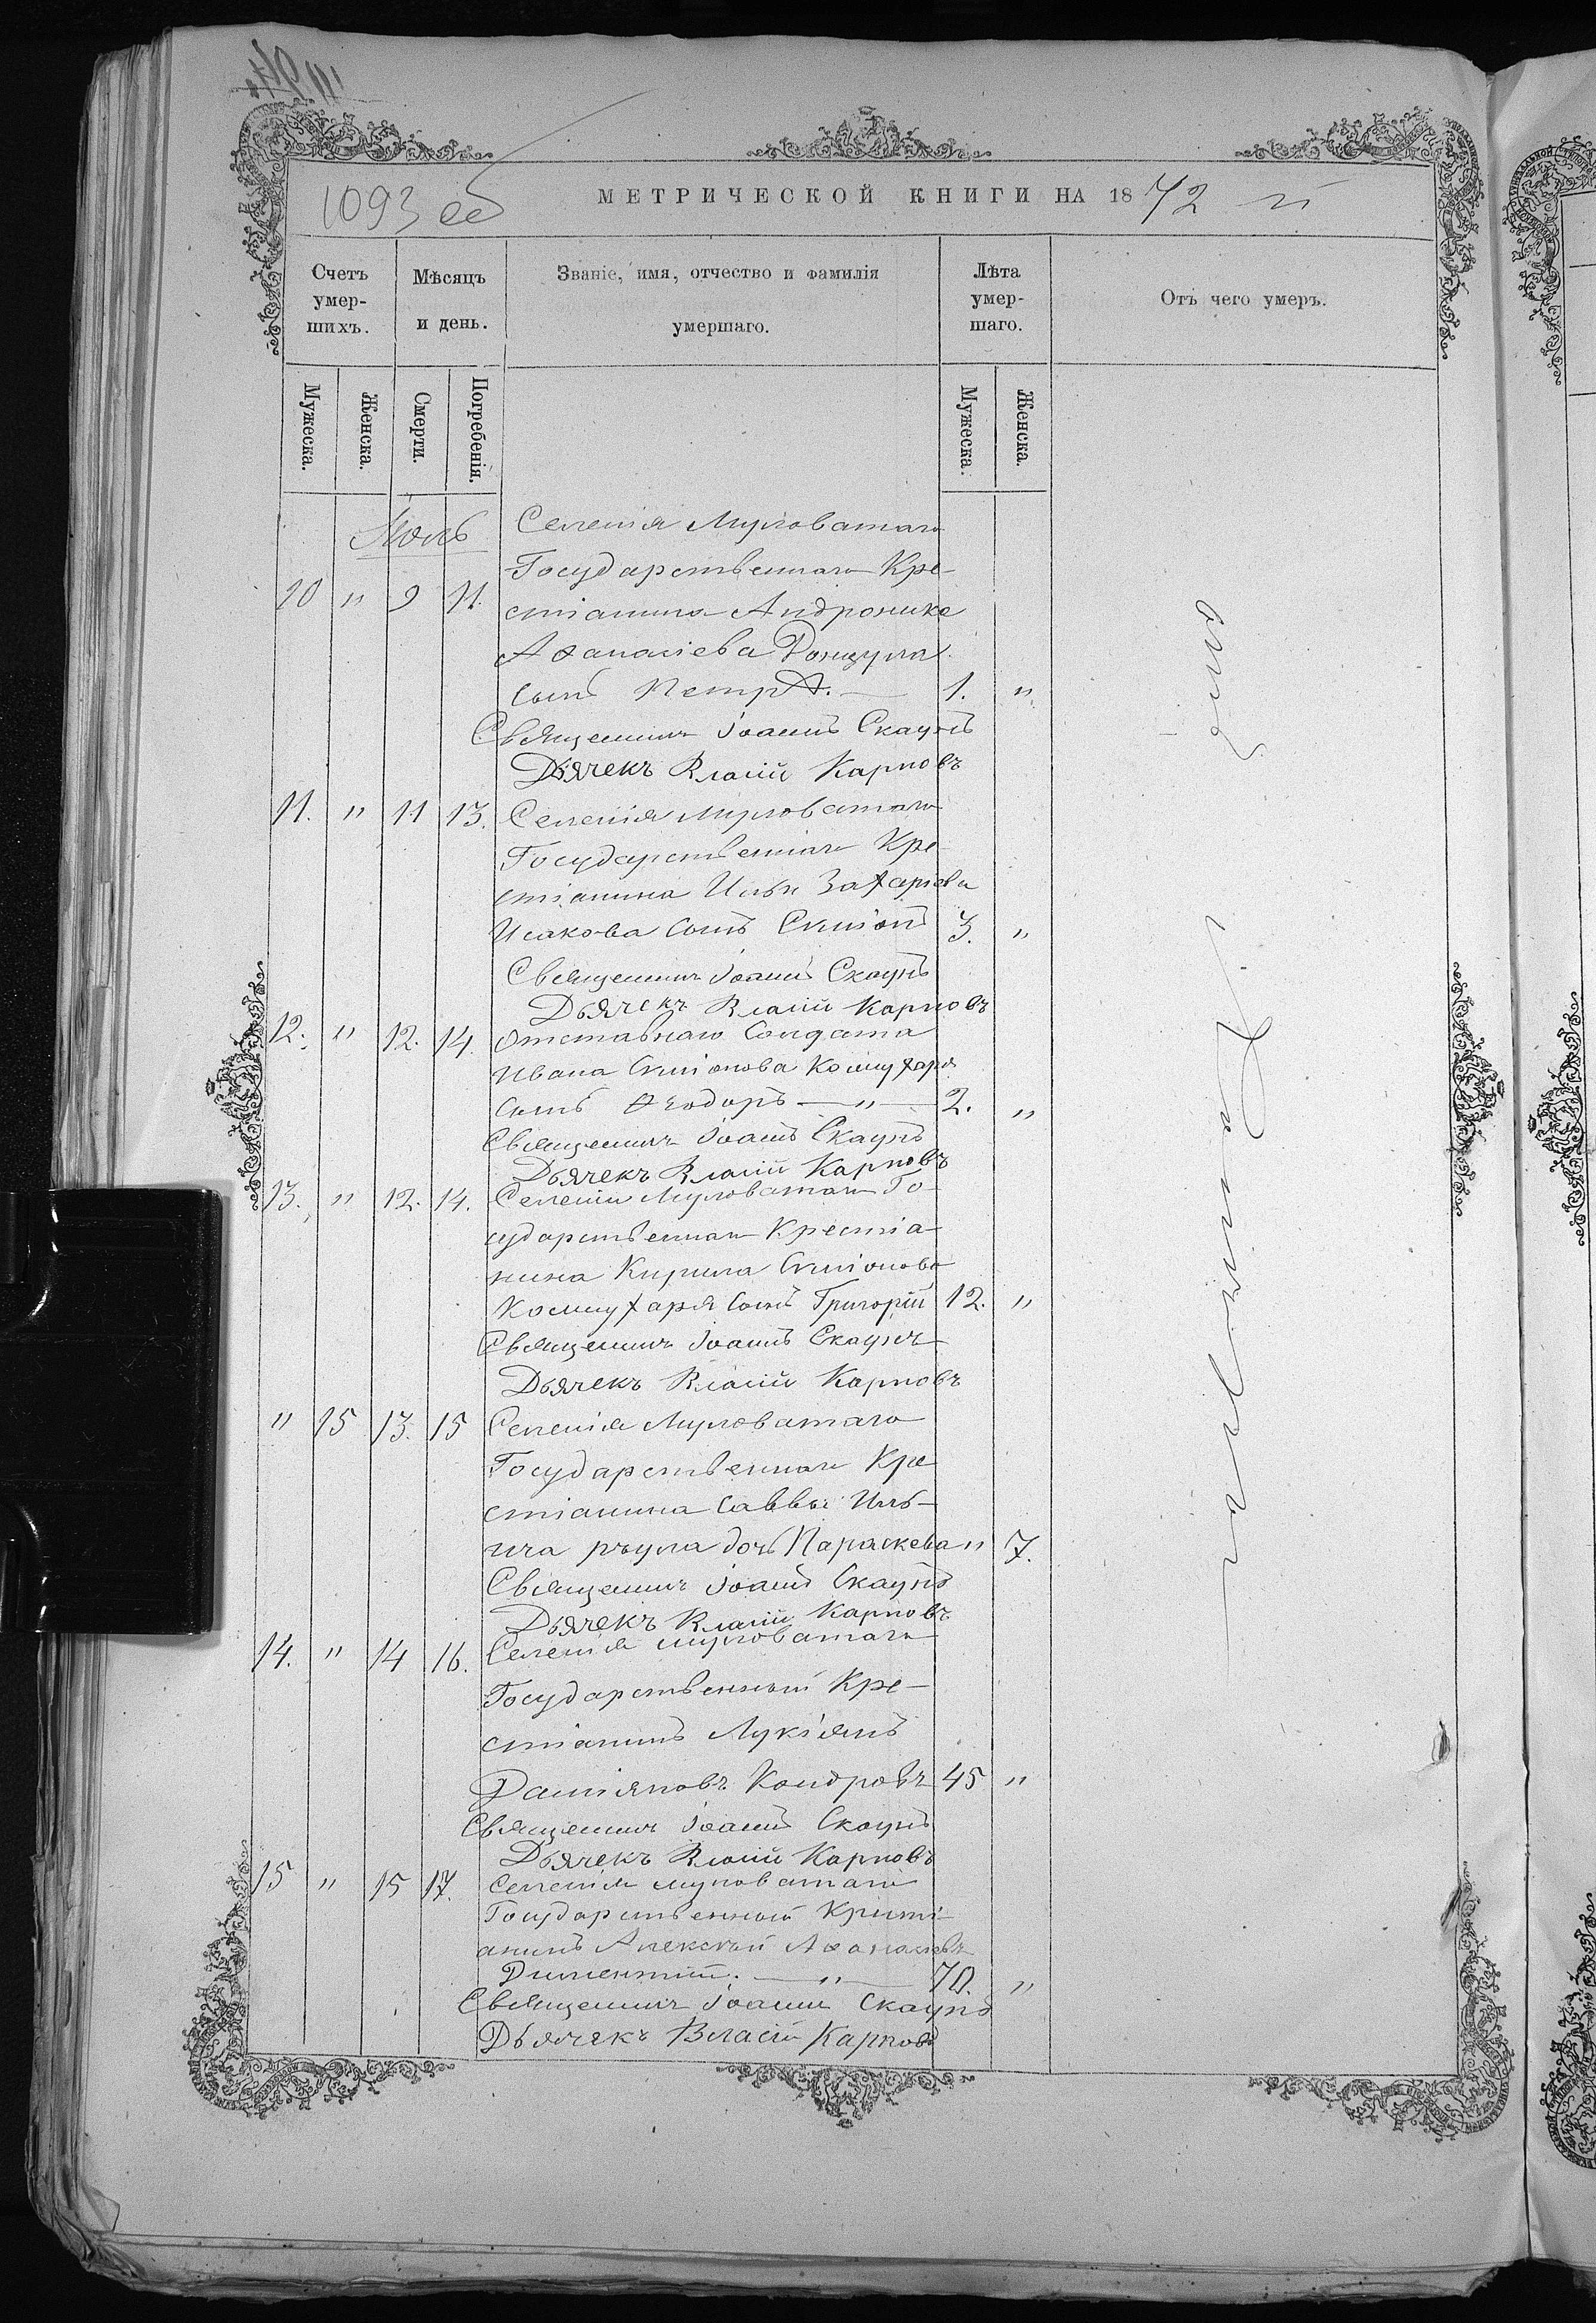 1093 об
МЕТРИЧЕСКОЙ КНИГИ НА 1872 й
Счетъ умер-шихъ.
Мѣсяцъ и день.
Званіе, имя, отчество и фамилія умершаго.
Лѣта умер-шаго.
Отъ чего умеръ.
Мужеска.
Женска.
Смерти.
Погребенія.
Мужеска.
Женска.
Июль
Селенія Мугловатаго
Государственнаго Кре-
10 " 9 11. стіанина Андроника
Афанасіева
сынъ Петръ. — 1. "
Священникъ Іоаннъ Скаунъ
Дьячекъ Власій Карповъ
11. " 11 13. Селенія Мугловатаго
Государственнаго Кре
стіанина Ильи Захаріева
Исакова сынъ Симіонъ 3. "
Священникъ Іоаннъ Скаунъ
Дьячекъ Власій Карповъ
12. " 12. 14. Отставнаго Солдата
Ивана Симіонова Кошухаря
сынъ Феодоръ — " — 2. "
Священникъ Іоаннъ Скаунъ
Дьячекъ Власій Карповъ
13. " 12. 14. Селенія Мугловатаго Го-
сударственнаго Крестіа-
нина Кирила Симіонова
Кошухаря сынъ Григорій 12. "
Священникъ Іоаннъ Скаунъ
Дьячекъ Власій Карповъ
" 15 13. 15 Селенія Мугловатаго
Государственнаго Кре
стіанина Саввы Иль-
ича дочь Параскева " 7.
Священникъ Іоаннъ Скаунъ
Дьячекъ Власій Карповъ
14. " 14 16. Селенія Мугловатаго
Государственный Кре-
стіанинъ Лукіянъ
Даміяновъ 45 "
Священникъ Іоаннъ Скаунъ
Дьячекъ Власій Карповъ
15 " 15 17. Селенія Мугловатаго
Государственный Кристі-
анинъ Алексѣй Афанасіевъ
70. "
Священникъ Іоаннъ Скаунъ
Дьячекъ Власій Карповъ